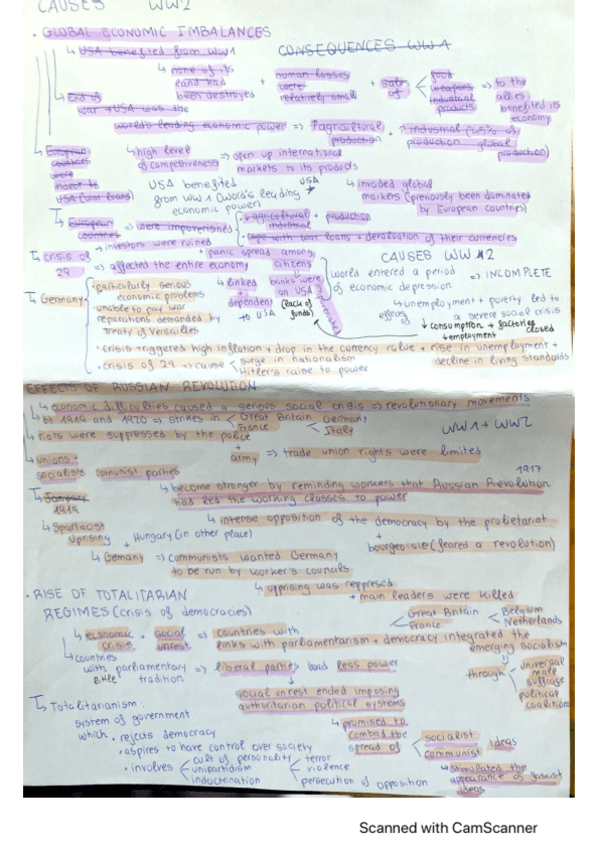 CAUSES WW2
• GLOBAL ECONOMIC IMBALANCES
↳ USA benefited from WW1
CONSEQUENCES WW1
↳ none of its land had been destroyed + human losses were relatively small + sales of < food weapons industrial products => to the allies benefited its economy
↳ End of war → USA was the world's leading economic power => ↑ agricultural production + ↑ industrial (45% of production global production)
↳ European countries were in debt to USA (war loans)
↳ high level of competitiveness => open up international markets to its products
USA benefited from WW1 (world's leading economic power)
USA
↳ invaded global markets (previously been dominated by European countries)
↳ European countries => were impoverished
• ↓ agricultural + industrial production
• cope with war loans + devaluation of their currencies
↳ crisis of 29 => affected the entire economy
→ investors were ruined
• panic spread among citizens
CAUSES WW2
banks were (lack of funds)
↳ linked + dependent to USA
world entered a period of economic depression => INCOMPLETE
↳ unemployment + poverty led to a severe social crisis
↓ consumption + factories closed
↓ employment
↳ Germany
• particularly serious economic problems
• unable to pay war reparations demanded by Treaty of Versailles
• crisis triggered high inflation + drop in the currency value + rise in unemployment + decline in living standards
• crisis of 29 => cause < surge in nationalism Hitler's raise to power
EFFECTS OF RUSSIAN REVOLUTION
↳ economic difficulties caused a serious social crisis => revolutionary movements
↳ 1919 and 1920 => strikes in < Great Britain France < Germany Italy
WW1 + WW2
↳ riots were suppressed by the police + army => trade union rights were limited
↳ unions + socialists comunist parties
1917
↳ become stronger by reminding workers that Russian Revolution had led the working classes to power
↳ 1919
↳ intense opposition of the democracy by the proletariat + bourgeoisie (feared a revolution)
↳ Spartacist Uprising + Hungary (in other place)
↳ Germany => communists wanted Germany to be run by worker's councils
↳ uprising was repressed + main leaders were killed
• RISE OF TOTALITARIAN REGIMES (crisis of democracies)
↳ economic crisis + social unrest => countries with links with parliamentarism + democracy integrated the emerging socialism
Great Britain France < Belgium Netherlands
through < universal male suffrage political coalitions
↳ countries with little parliamentary tradition => liberal parties had less power
↓
social unrest ended imposing authoritarian political systems
↳ promised to combad the spread of < socialist communist ideas
↳ stimulated the appearance of fascist ideas
↳ Totalitarianism:
system of government which
• rejects democracy
• aspires to have control over society
• involves < cult of personality unipartidism indoctrination < terror violence persecution of opposition
Scanned with CamScanner